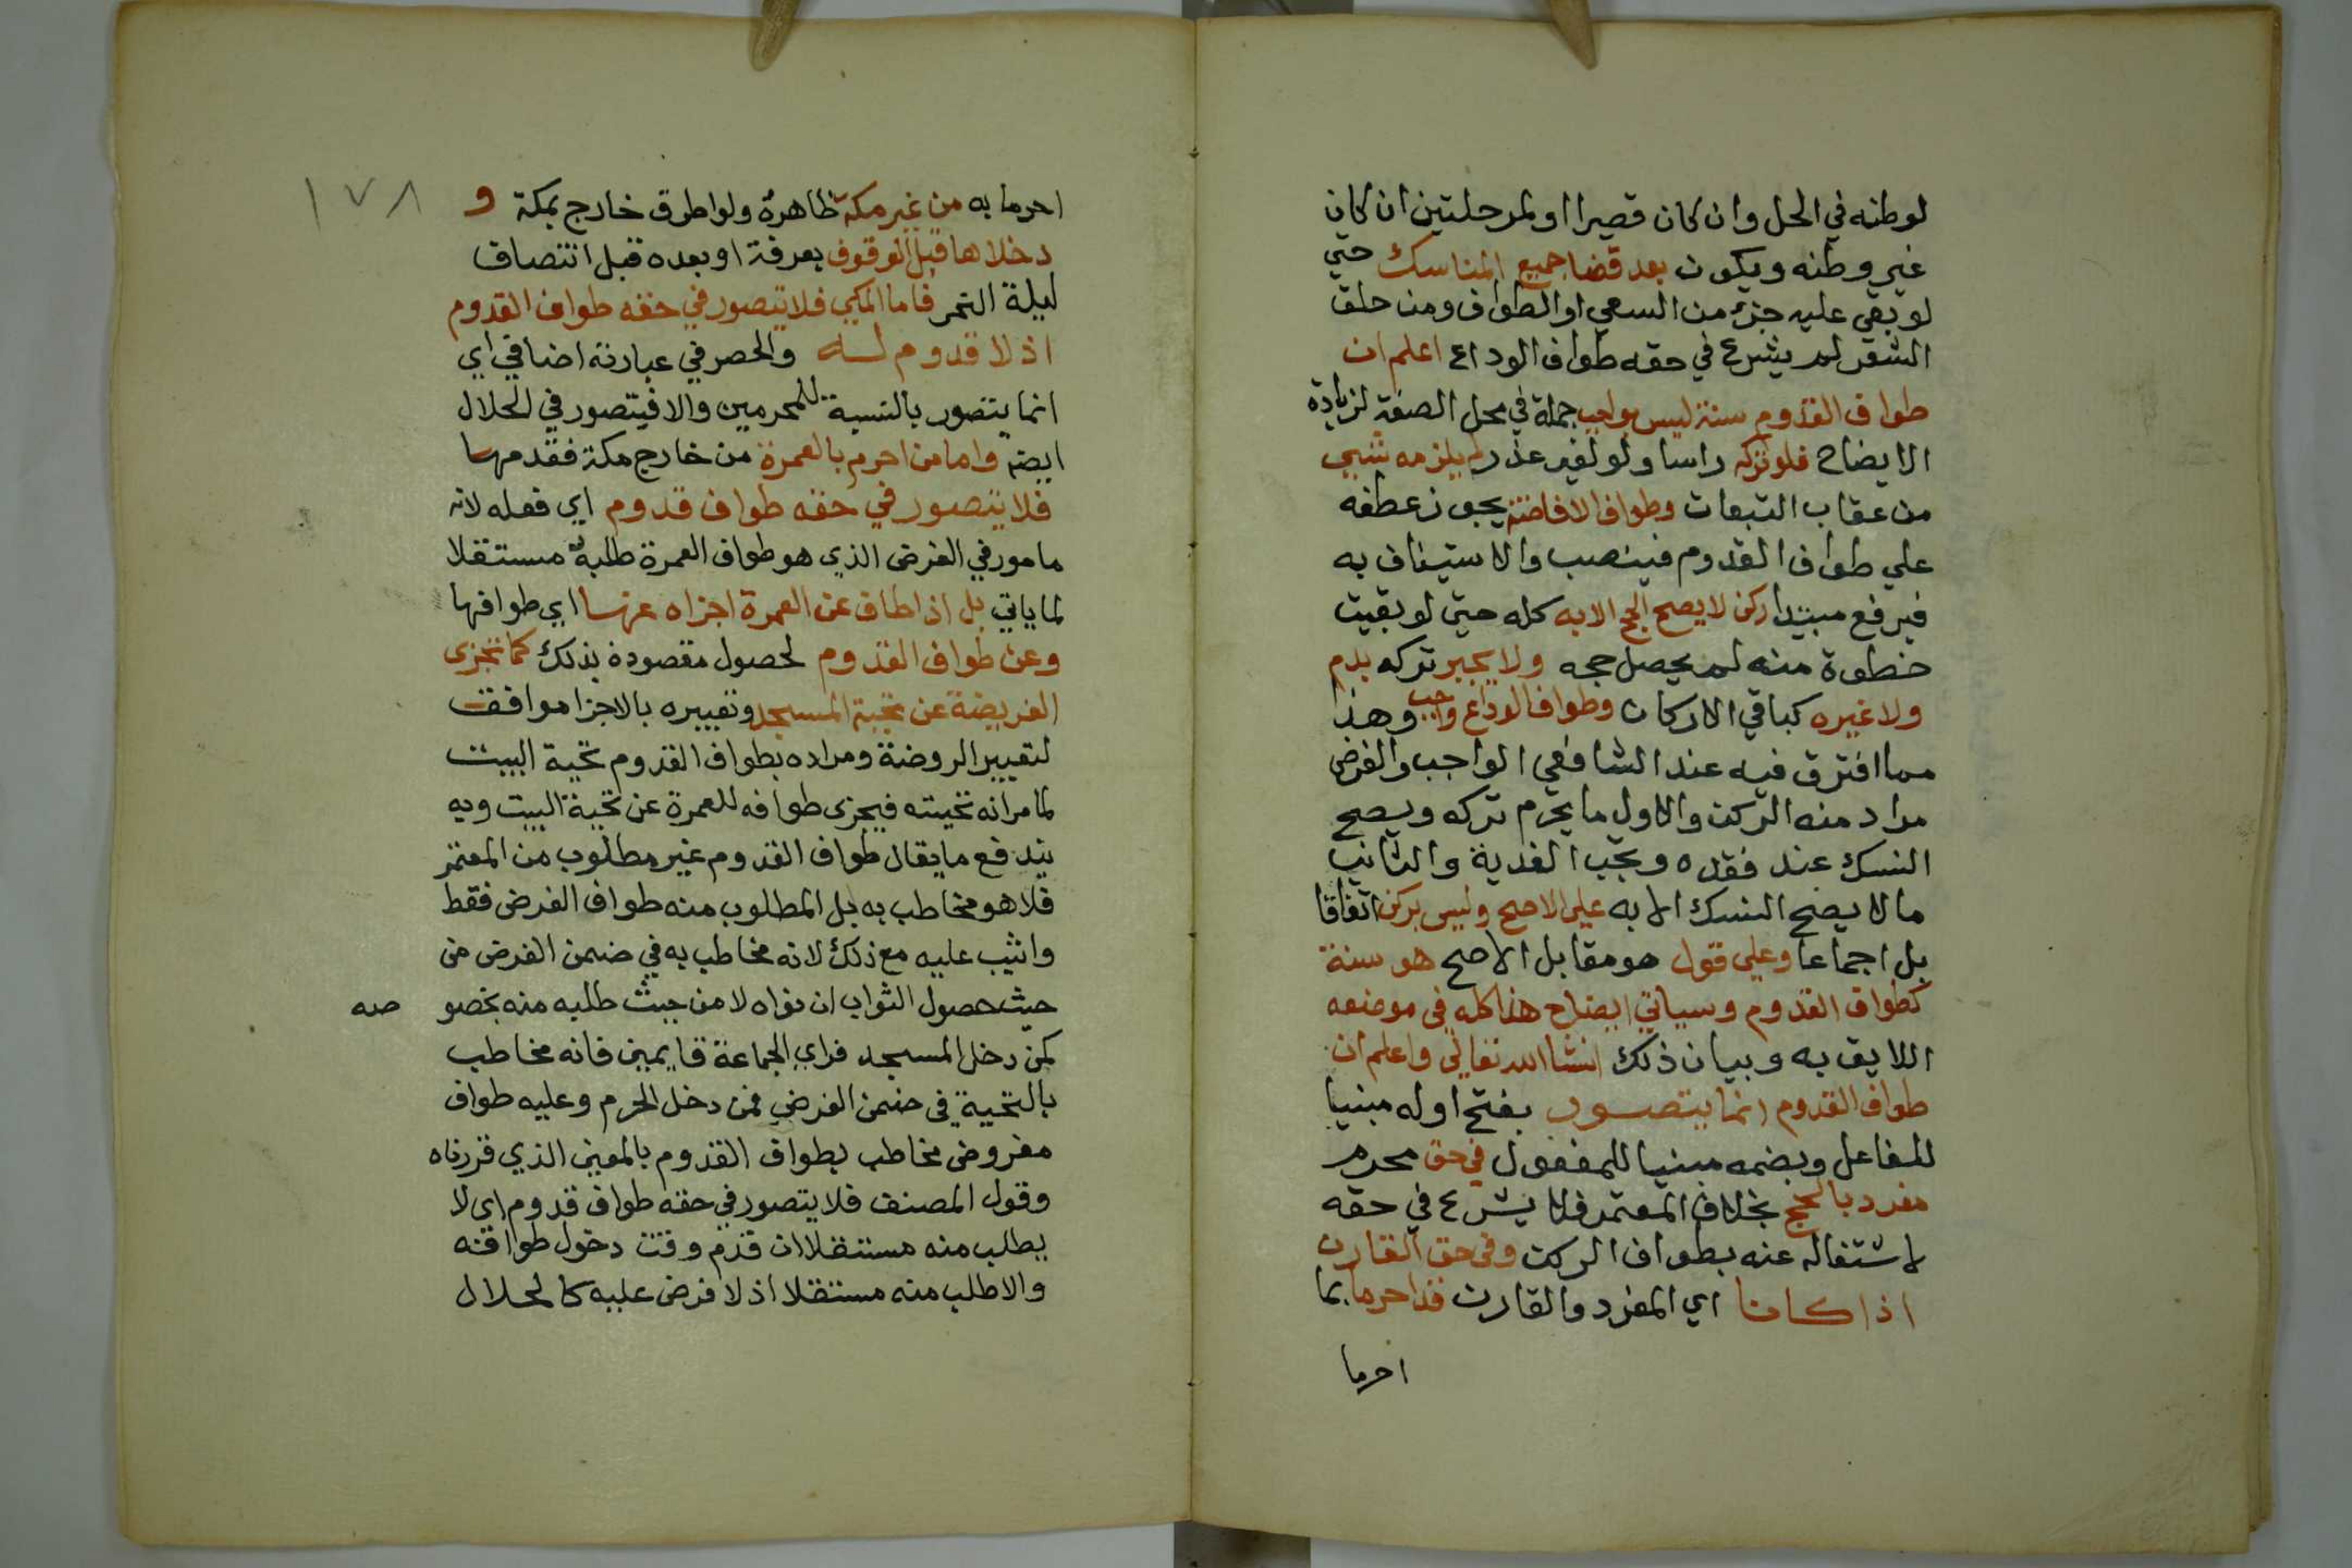 لوطنه في الحل وان كان قصيرا او لمرحلتين ان كان
غير وطنه ويكون بعد قضا جميع المناسك حتي
لو بقي عليه جزء من السعي او الطواف ومن حلق
الشعر لم يشرع في حقه طواف الوداع اعلم ان
طواف القدوم سنة ليس بواجب جملة في محل الصفة لزيادة
الايضاح فلو تركه راسا ولو لغير عذر لم يلزمه شيي
من عقاب التبعات وطواف الافاضة يجوز عطفه
علي طواف القدوم فينصب والاستيناف به
فيرفع مبتدا ركن لا يصح الحج الا به كله حتي لو بقيت
خطوة منه لم يحصل حجه ولا يجبر تركه بدم
ولا غيره كباقي الاركان وطواف الوداع واجب وهذا
مما افترق فيه عند الشافعي الواجب والفرض
مراد منه الركن والاول ما يحرم تركه ويصح
النسك عند فقده ويجب الفدية والثاني
ما لا يصح النسك الا به علي الاصح وليس بركن اتفاقا
بل اجماعا وعلي قول هو مقابل الاصح هو سنة
كطواف القدوم وسياتي ايضاح هذا كله في موضعه
اللايق به وبيان ذلك انشا الله تعالي واعلم ان
طواف القدوم انما يتصور بفتح اوله مبنيا
للفاعل وبضمه مبنيا للمفعول في حق محرم
مفرد بالحج بخلاف المعتمر فلا يشرع في حقه
لاشتغاله عنه بطواف الركن وفي حق القارن
اذا كانا اي المفرد والقارن قد احرما بما
احرما
١٧٨
احرما به من غير مكة ظاهره ولو اطرق خارج بمكة و
دخلاها قبل الوقوف بعرفة او بعده قبل انتصاف
ليلة النحر فاما المكي فلا يتصور في حقه طواف القدوم
اذ لا قدوم له والحصر في عبارته اضافي اي
انما يتصور بالنسبة للمحرمين والا فيتصور في الحلال
ايضه واما من احرم بالعمرة من خارج مكة فقدمها
فلا يتصور في حقه طواف قدوم اي فعله لانه
مامور في الفرض الذي هو طواف العمرة طلبه مستقلا
لما ياتي بل اذا طاف عن العمرة اجزاه عنها اي طوافها
وعن طواف القدوم لحصول مقصوده بذلك كما تجزي
الفريضة عن تحية المسجد وتعبيره بالاجزا موافقت
لتعبير الروضة ومراده بطواف القدوم تحية البيت
لما مر انه تحيته فيجزي طوافه للعمرة عن تحية البيت وبه
يندفع ما يقال طواف القدوم غير مطلوب من المعتمر
فلا هو مخاطب به بل المطلوب منه طواف الفرض فقط
واثيب عليه مع ذلك لانه مخاطب به في ضمن الفرض من
حيث حصول الثواب ان نواه لا من حيث طلبه منه بخصو صه
كمن دخل المسجد فراي الجماعة قايمين فانه مخاطب
بالتحية في ضمن الفرض فمن دخل الحرم وعليه طواف
مفروض مخاطب بطواف القدوم بالمعني الذي قررناه
وقول المصنف فلا يتصور في حقه طواف قدوم اي لا
يطلب منه مستقلا ان قدم وقت دخول طوافه
والا طلب منه مستقلا اذ لا فرض عليه كالحلال